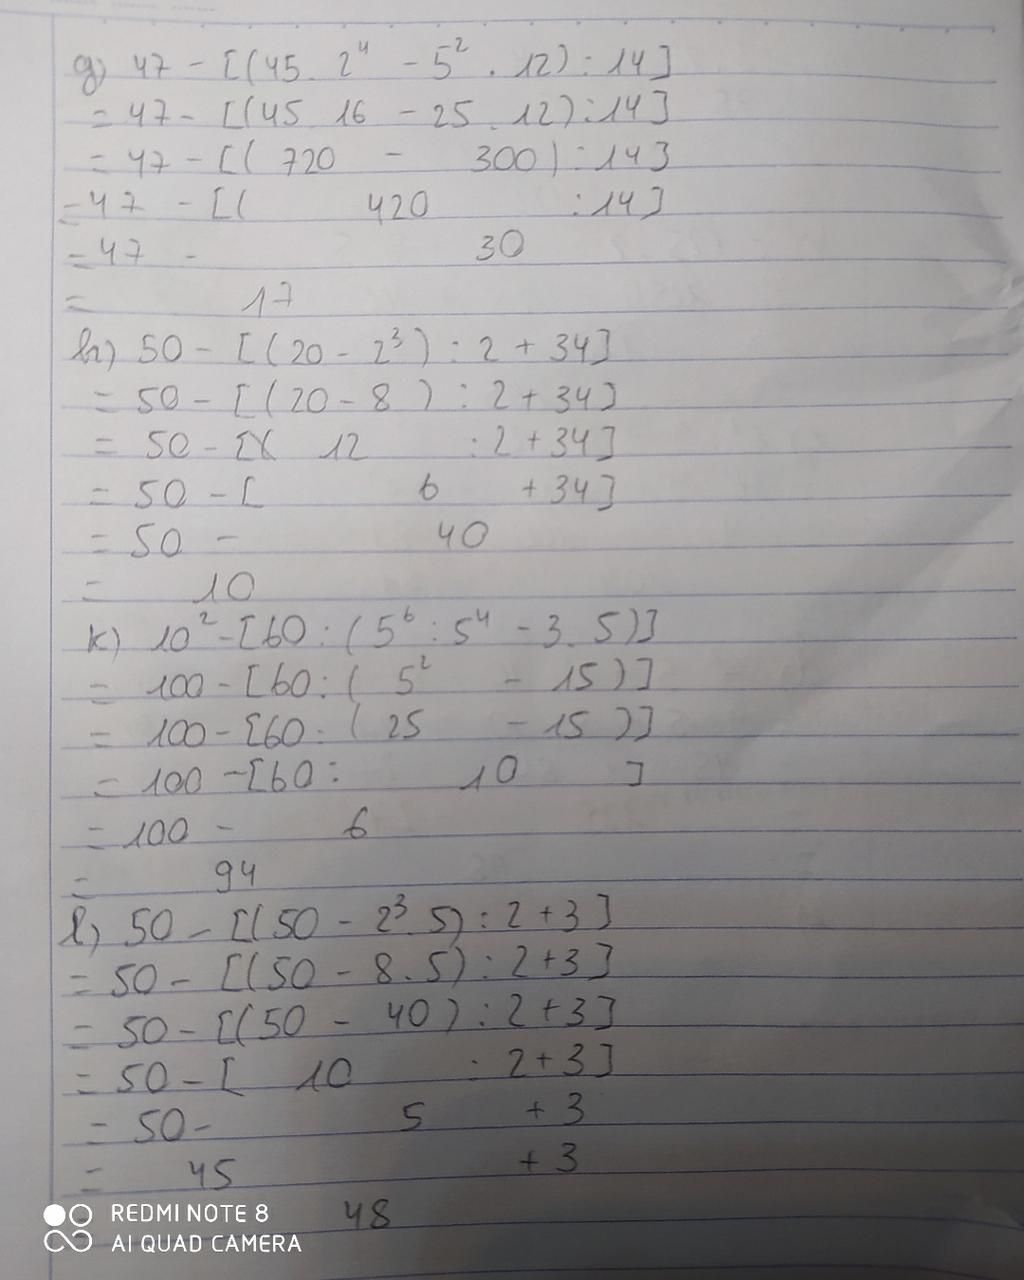 g) 47 - [(45. 2⁴ - 5² . 12) : 14]
= 47 - [(45 16 - 25 . 12) : 14]
= 47 - [( 720 - 300) : 14]
= 47 - [( 420 : 14]
= 47 - 30
= 17
h) 50 - [(20 - 2³) : 2 + 34]
= 50 - [(20 - 8 ) : 2 + 34]
= 50 - [( 12 : 2 + 34]
= 50 - [ 6 + 34]
= 50 - 40
= 10
k) 10² - [60 : (5⁶ : 5⁴ - 3. 5)]
= 100 - [60 : ( 5² - 15 )]
= 100 - [60 : ( 25 - 15 )]
= 100 - [60 : 10 ]
= 100 - 6
= 94
l) 50 - [(50 - 2³. 5) : 2 + 3 ]
= 50 - [(50 - 8. 5) : 2 + 3 ]
= 50 - [(50 - 40 ) : 2 + 3]
= 50 - [ 10 : 2 + 3 ]
= 50 - 5 + 3
= 45 + 3
48
REDMI NOTE 8
AI QUAD CAMERA